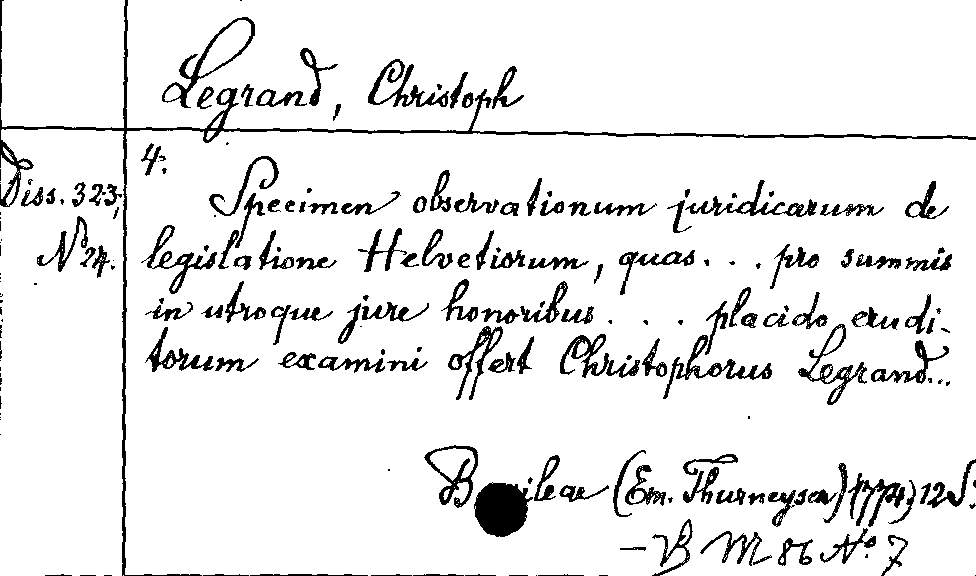 Legrand, Christoph
4.
Diss. 323,
Specimen observationum juridicarum de
No 24.
legislatione Helvetiorum, quas... pro summis
in utroque jure honoribus... placido erudi-
torum examini offert Christophorus Legrand...
(Em. Thurneysen) (1774) 12 S.
- B M 86 No. 7